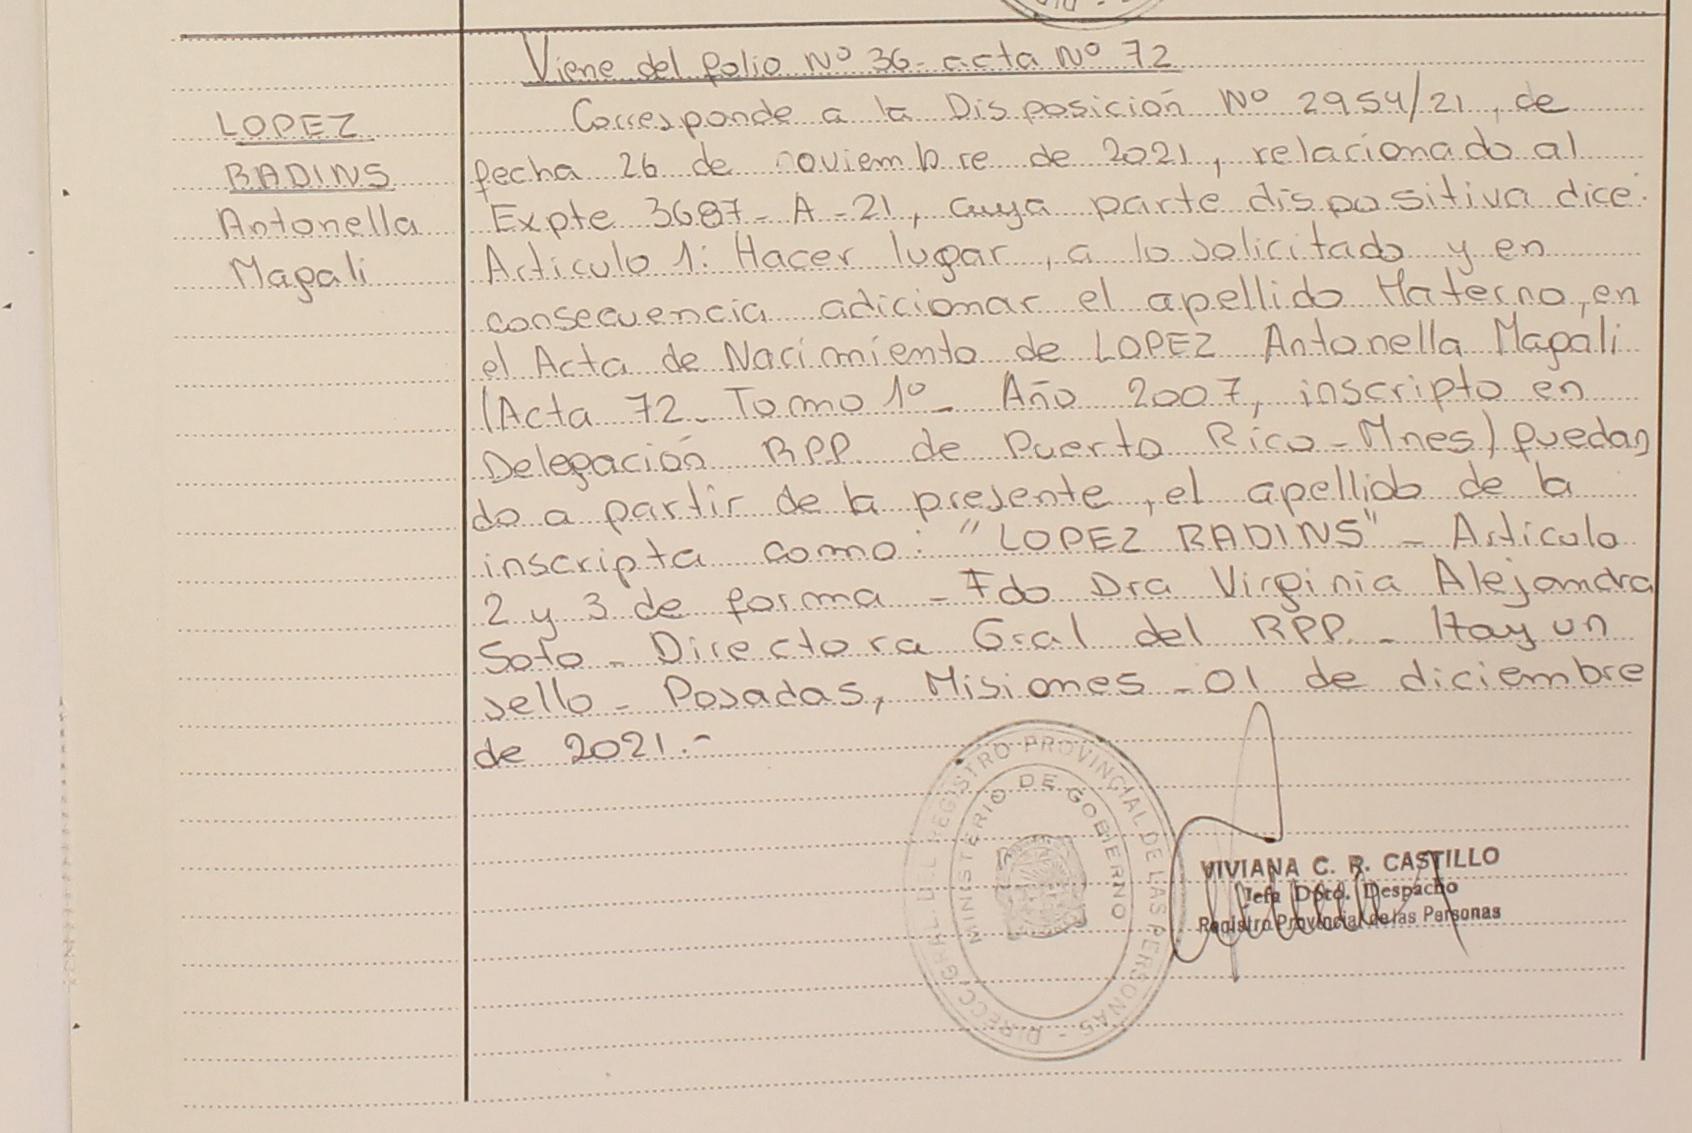 Viene del folio Nº 36- acta Nº 72
LOPEZ
BADINS
Antonella
Magali
Corresponde a la Disposición Nº 2954/21, de
fecha 26 de noviembre de 2021, relacionado al
Expte 3687-A-21, cuya parte dispositiva dice:
Articulo 1: Hacer lugar, a lo solicitado y en
consecuencia adicionar el apellido Materno, en
el Acta de Nacimiento de LOPEZ Antonella Magali
(Acta 72- Tomo 1º- Año 2007, inscripto en
Delegación RPP de Puerto Rico-Mnes) quedan
do a partir de la presente, el apellido de la
inscripta como: "LOPEZ BADINS" - Articulo
2 y 3 de forma - Fdo Dra Virginia Alejandra
Soto - Directora Gral del RPP - Hay un
sello - Posadas, Misiones -01 de diciembre
de 2021.-
DIRECC. GRAL. DEL REGISTRO PROVINCIAL DE LAS PERSONAS -
MINISTERIO DE GOBIERNO
VIVIANA C. R. CASTILLO
Jefa Dpto. Despacho
Registro Provincial de las Personas